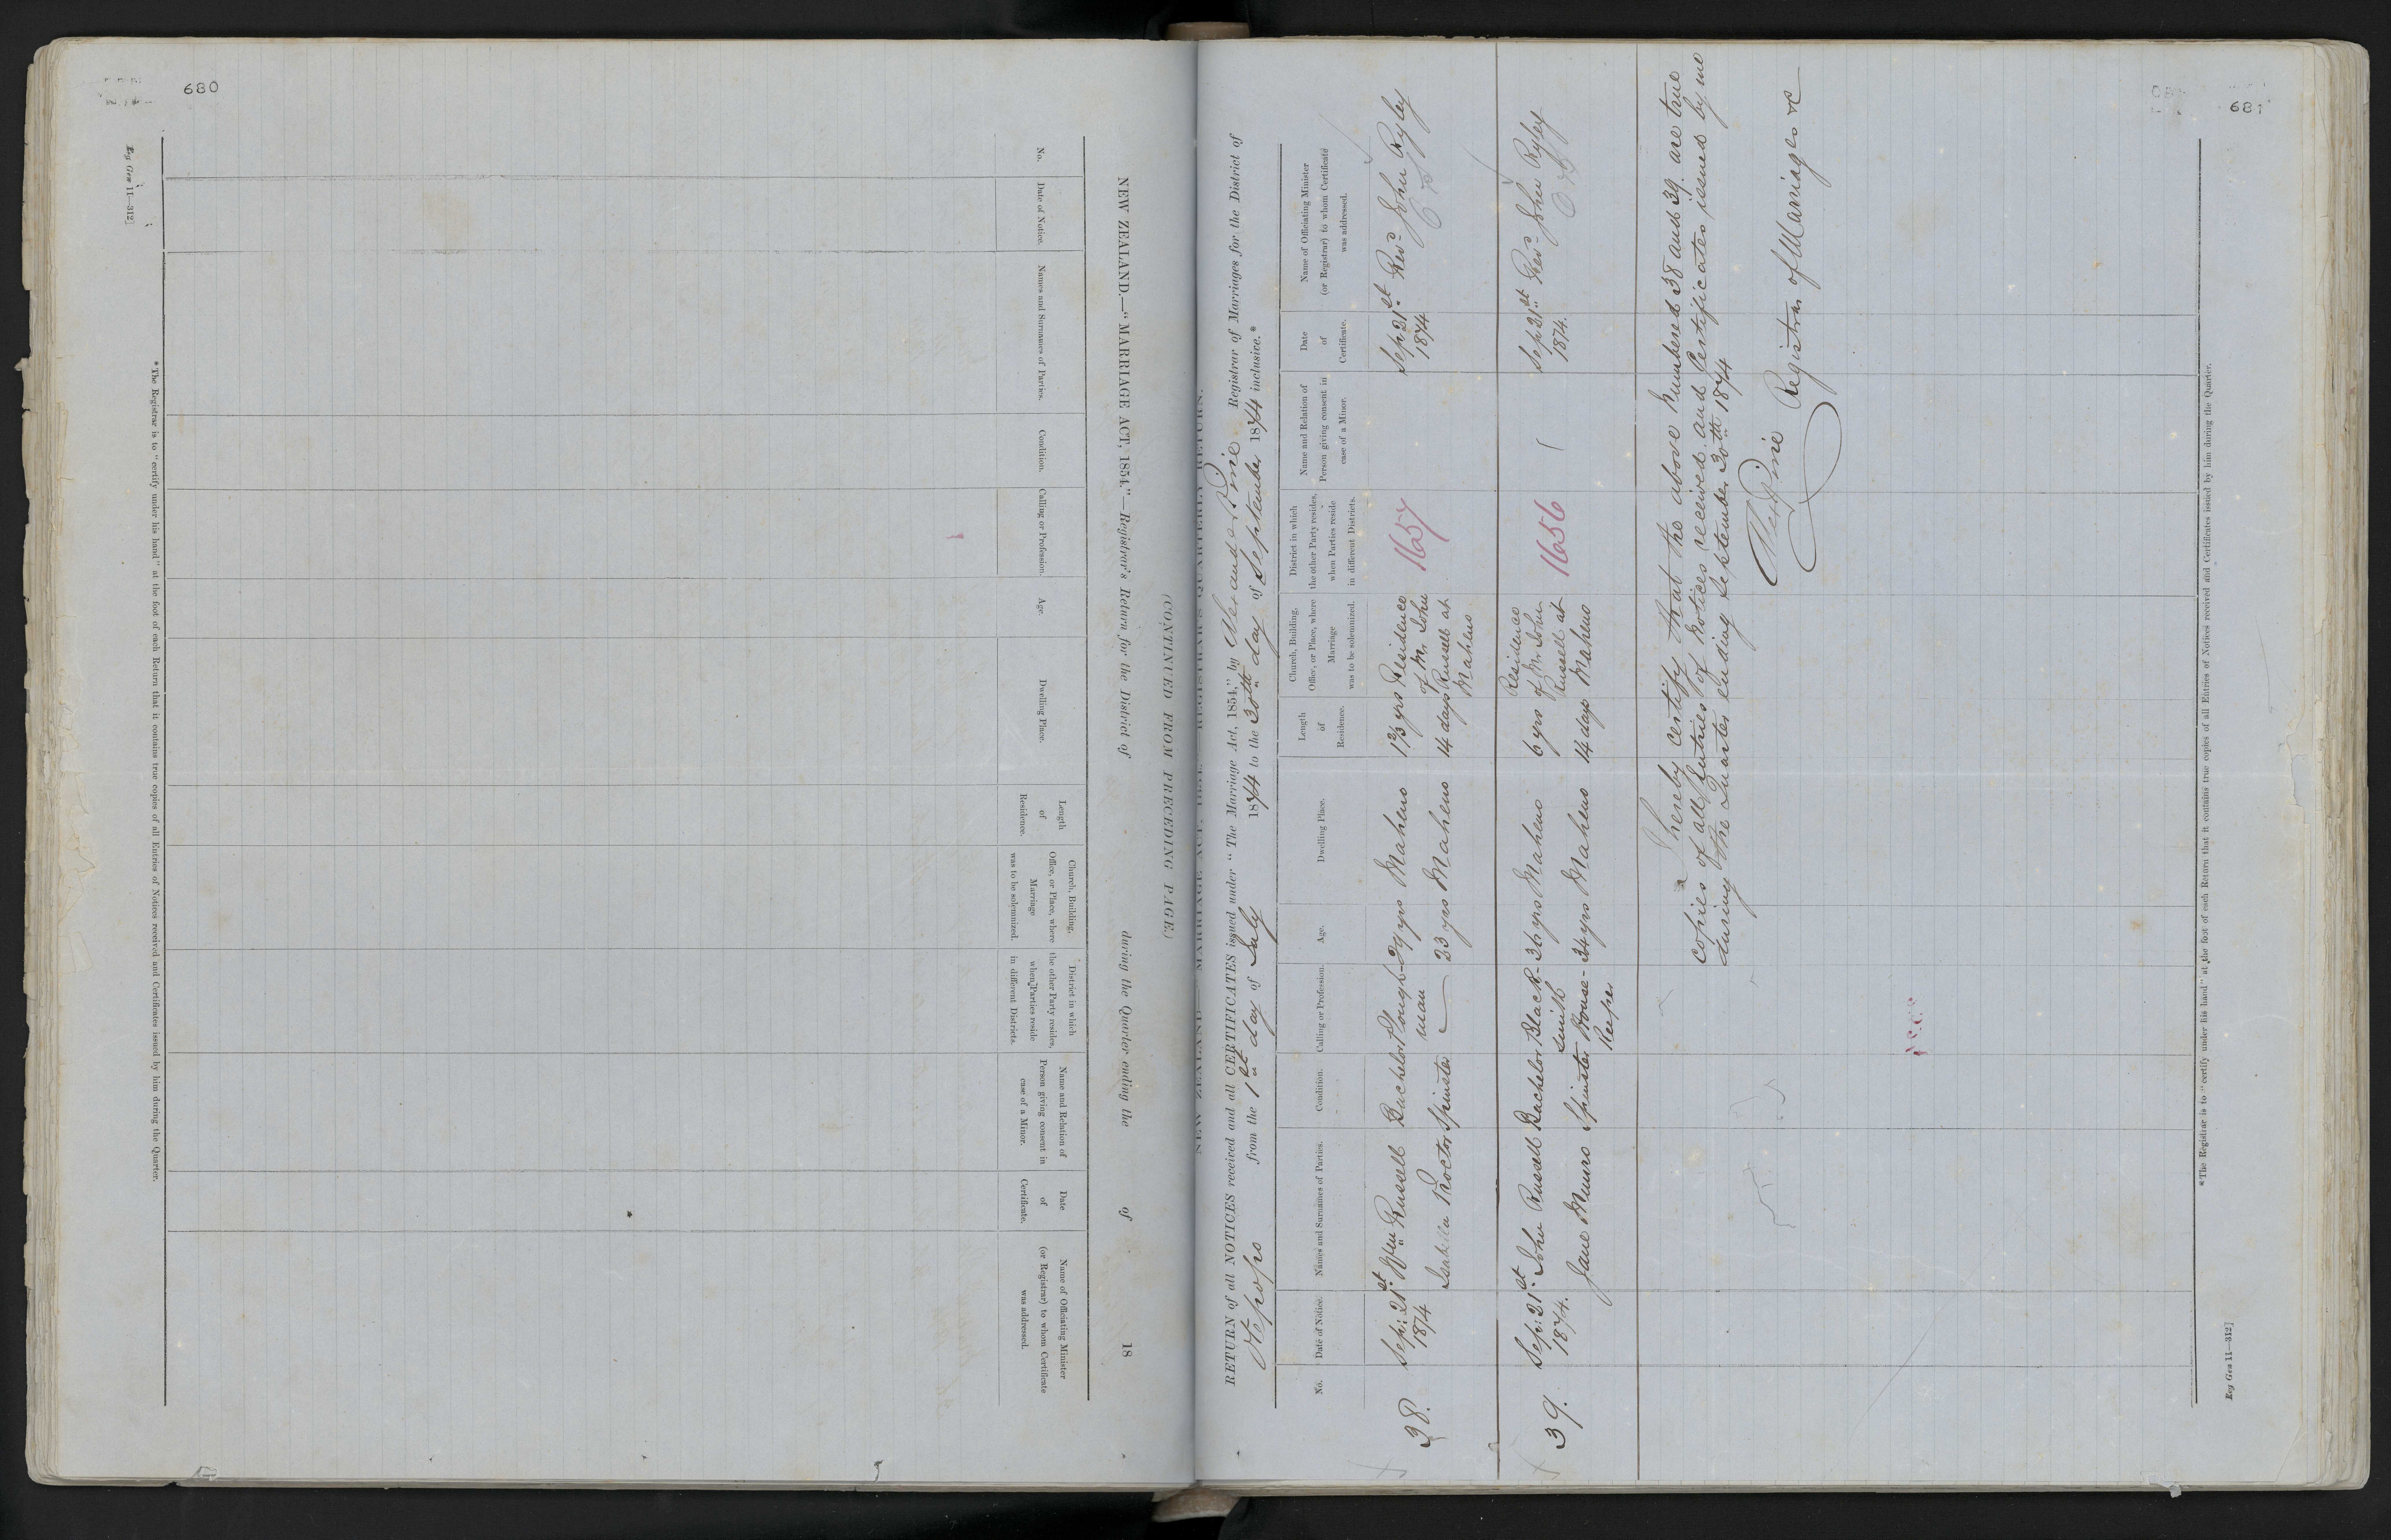 680
NEW ZEALAND.—"MARRIAGE ACT, 1854."—Registrar's Return for the District of during the Quarter ending the of 18
(CONTINUED FROM PRECEDING PAGE.)
No.
Date of Notice.
Names and Surnames of Parties.
Condition.
Calling or Profession.
Age.
Dwelling Place.
Length
of
Residence.
Church, Building,
Office, or Place, where
Marriage
was to be solemnized.
District in which
the other Party resides,
when Parties reside
in different Districts.
Name and Relation of
Person giving consent in
case of a Minor.
Date
of
Certificate.
Name of Officiating Minister
(or Registrar) to whom Certificate
was addressed.
*The Registrar is to "certify under his hand" at the foot of each Return that it contains true copies of all Entries of Notices received and Certificates issued by him during the Quarter.
Reg Gen 11—312]
681
NEW ZEALAND.—"MARRIAGE ACT, 1854."—REGISTRAR'S QUARTERLY RETURN.
RETURN of all NOTICES received and all CERTIFICATES issued under "The Marriage Act, 1854," by Alexander Pirie Registrar of Marriages for the District of
Otepopo from the 1st day of July 1874 to the 30th day of September 1874 inclusive.*
No.
Date of Notice.
Names and Surnames of Parties.
Condition.
Calling or Profession.
Age.
Dwelling Place.
Length
of
Residence.
Church, Building,
Office, or Place, where
Marriage
was to be solemnized.
District in which
the other Party resides,
when Parties reside
in different Districts.
Name and Relation of
Person giving consent in
case of a Minor.
Date
of
Certificate.
Name of Officiating Minister
(or Registrar) to whom Certificate
was addressed.
38. Sep: 21st Wm Russell Bachelor Plough- 29 yrs Maheno 1 2/3 yrs Residence 1657 Sep 21st Revd John Ryley
1874 man of Mr John 1874
Isabella Proctor Spinster — 23 yrs Maheno 14 days Russell at
Maheno
39. Sep: 21st John Russell Bachelor Black- 36 yrs Maheno 6 yrs Residence of Mr John 1656 Sep 21st Revd John Ryley
1874. smith Russell at 1874.
Jane Munro Spinster House- 34 yrs Maheno 14 days Maheno
Keeper
I hereby certify that the above numbered 38 and 39. are true
copies of all Entries of Notices received and Certificates issued by me
during the Quarter ending September 30th 1874
Alex Pirie Registrar of Marriages &c
*The Registrar is to "certify under his hand" at the foot of each Return that it contains true copies of all Entries of Notices received and Certificates issued by him during the Quarter.
Reg Gen 11—312]